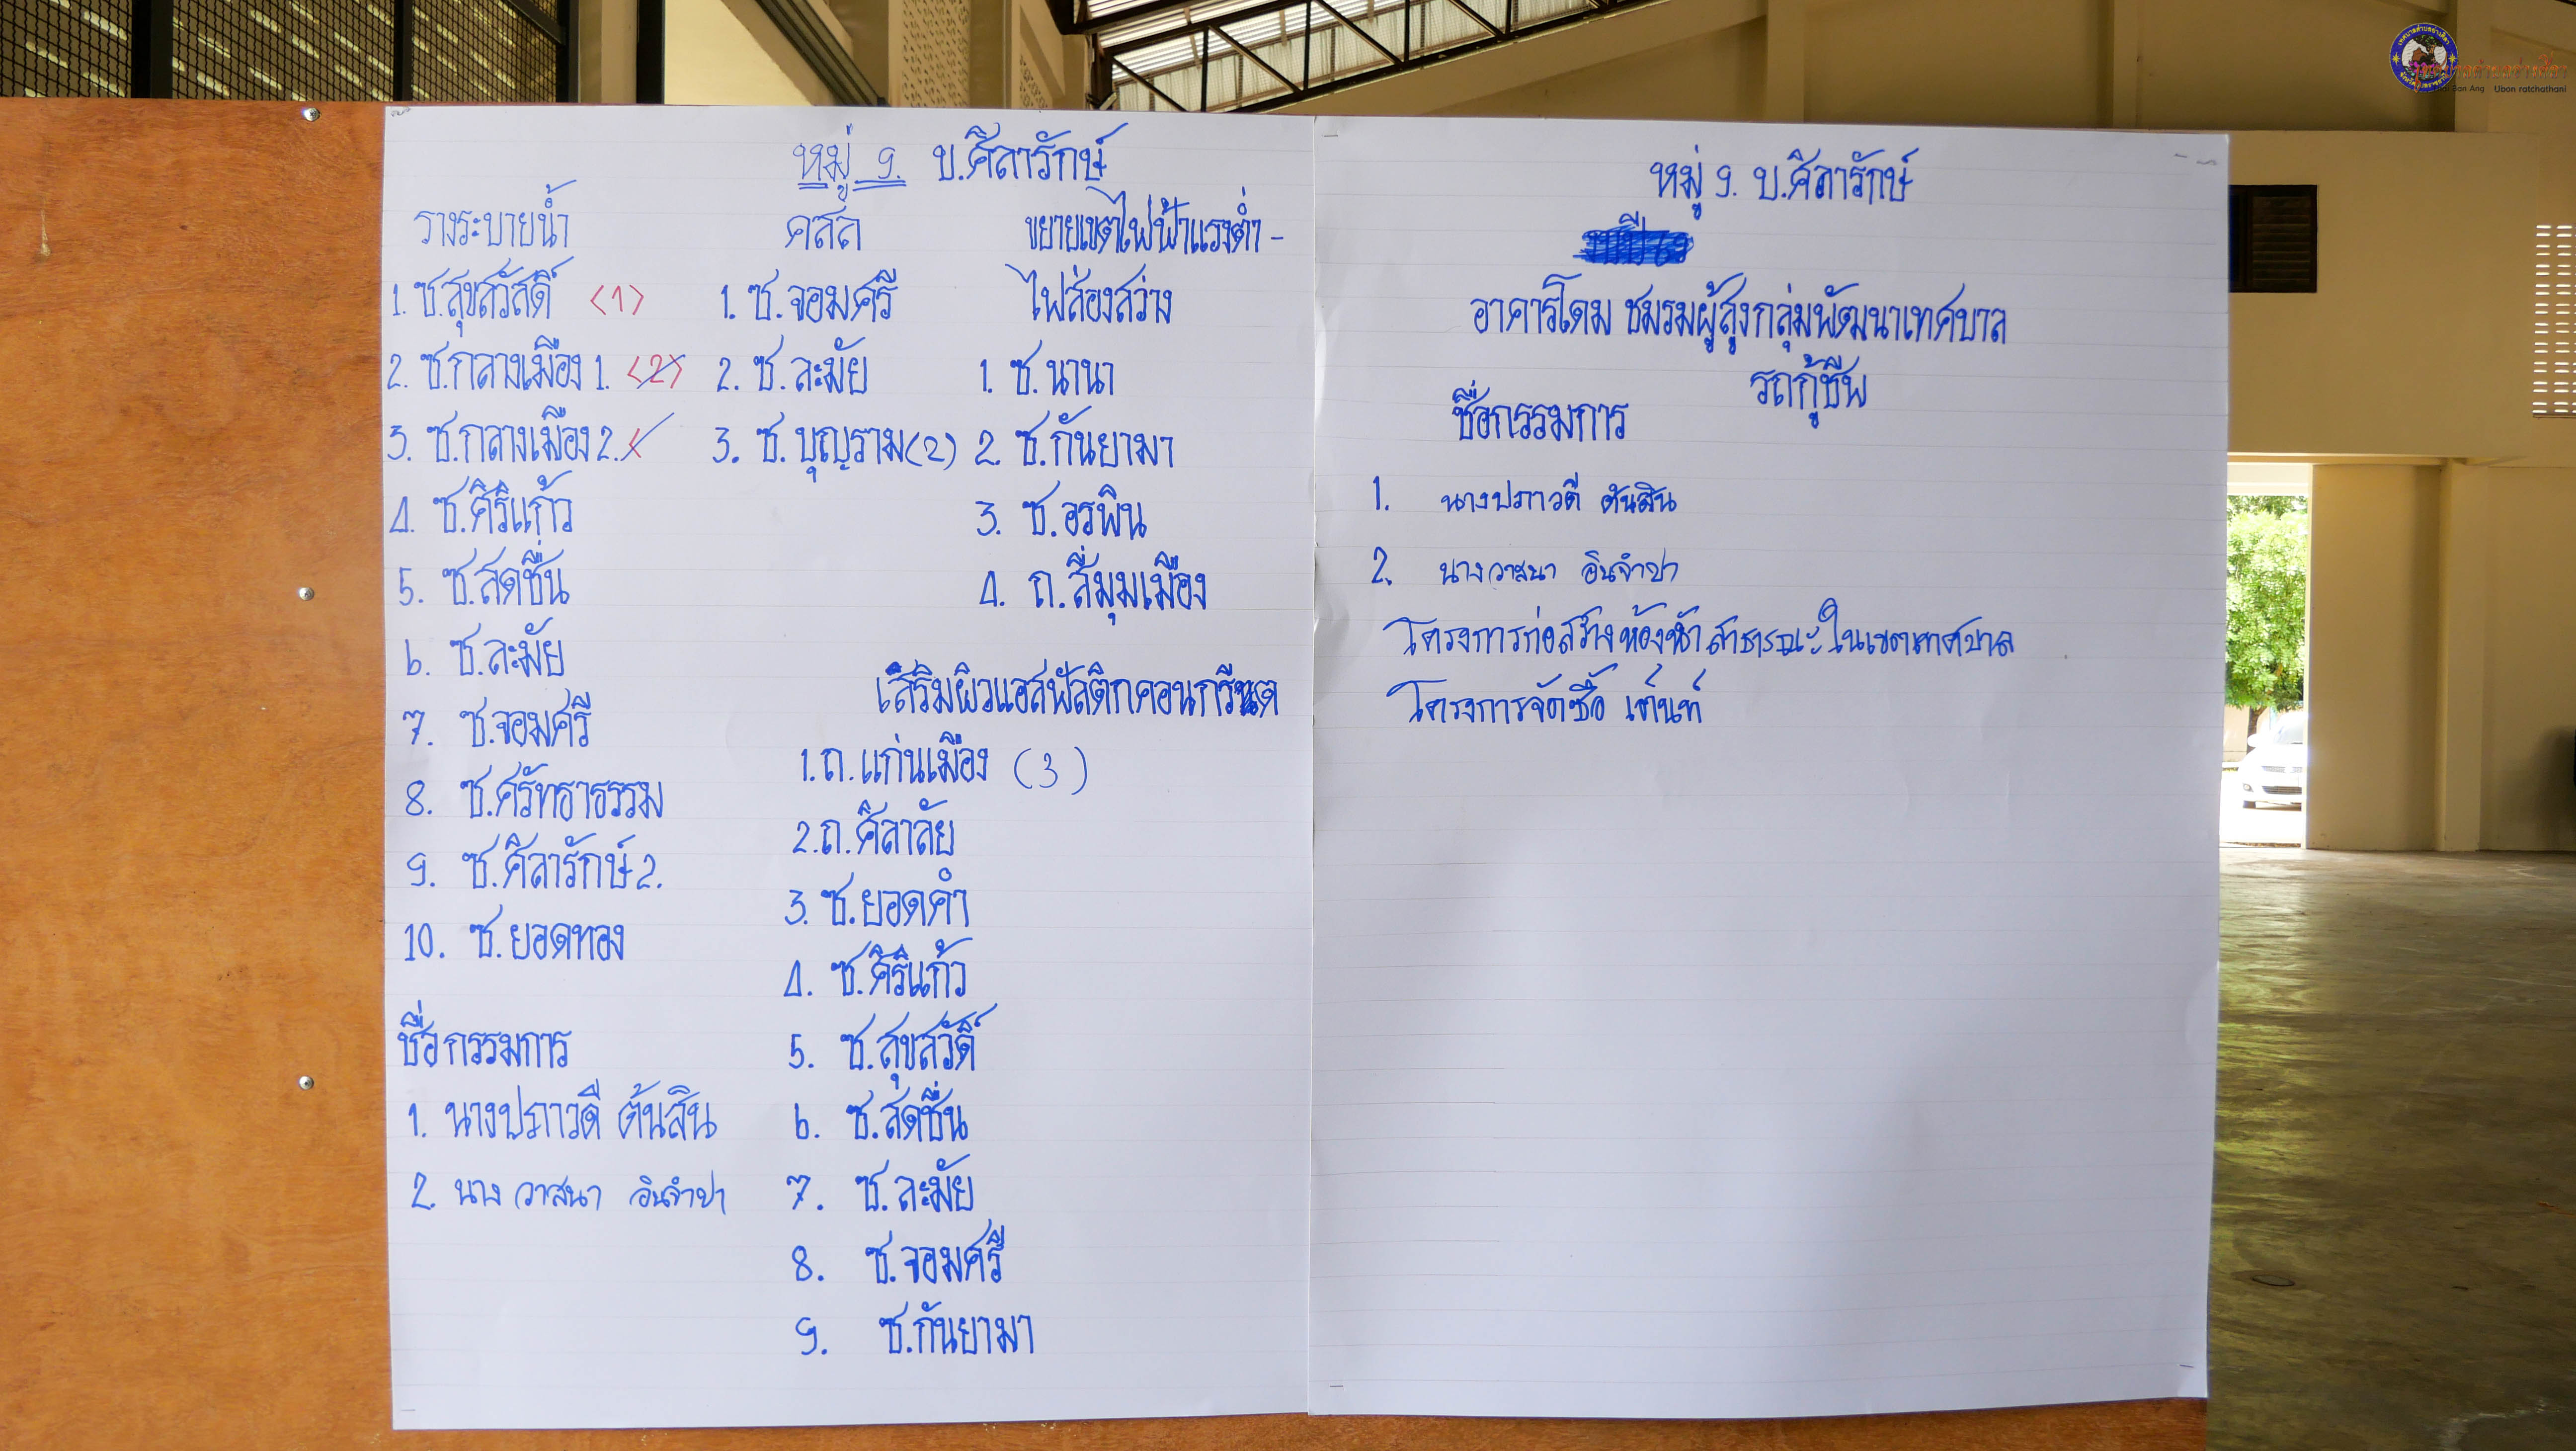 หมู่ 9. บ.ศิลารักษ์
รางระบายน้ำ
1. ซ.สุขสวัสดิ์ <1>
2. ซ.กลางเมือง 1. <2>
3. ซ.กลางเมือง 2.
4. ซ.ศิริแก้ว
5. ซ.สดชื่น
6. ซ.ละมัย
7. ซ.จอมศรี
8. ซ.ศรัทธาธรรม
9. ซ.ศิลารักษ์ 2.
10. ซ.ยอดทอง
ชื่อกรรมการ
1. นางปภาวดี ต้นสิน
2. นางวาสนา อินจำปา
คสล
1. ซ.จอมศรี
2. ซ.ละมัย
3. ซ.บุญราม (2)
ขยายเขตไฟฟ้าแรงต่ำ -
ไฟส่องสว่าง
1. ซ.นานา
2. ซ.กันยามา
3. ซ.อรพิน
4. ถ.สี่มุมเมือง
เสริมผิวแอสฟัลติกคอนกรีต
1. ถ.แก่นเมือง (3)
2. ถ.ศิลาลัย
3. ซ.ยอดคำ
4. ซ.ศิริแก้ว
5. ซ.สุขสวัดิ์
6. ซ.สดชื่น
7. ซ.ละมัย
8. ซ.จอมศรี
9. ซ.กันยามา
หมู่ 9. บ.ศิลารักษ์
อาคารโดม ชมรมผู้สูงกลุ่มพัฒนาเทศบาล
รถกู้ชีพ
ชื่อกรรมการ
1. นางปภาวดี ต้นสิน
2. นางวาสนา อินจำปา
โครงการก่อสร้างห้องน้ำสาธารณะในเขตเทศบาล
โครงการจัดซื้อ เต็นท์
Ubon ratchathani